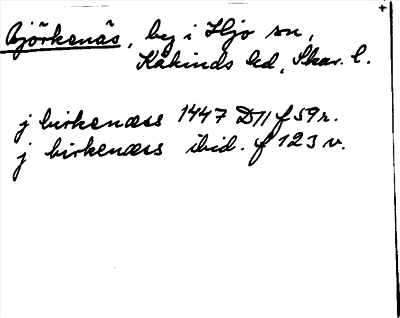 Björkenäs, beg i Hjo sn,
Kåkinds hd, Skar. l.
j birkenæss 1447 D11 f 59r.
j birkenæss ibid. f 123 v.